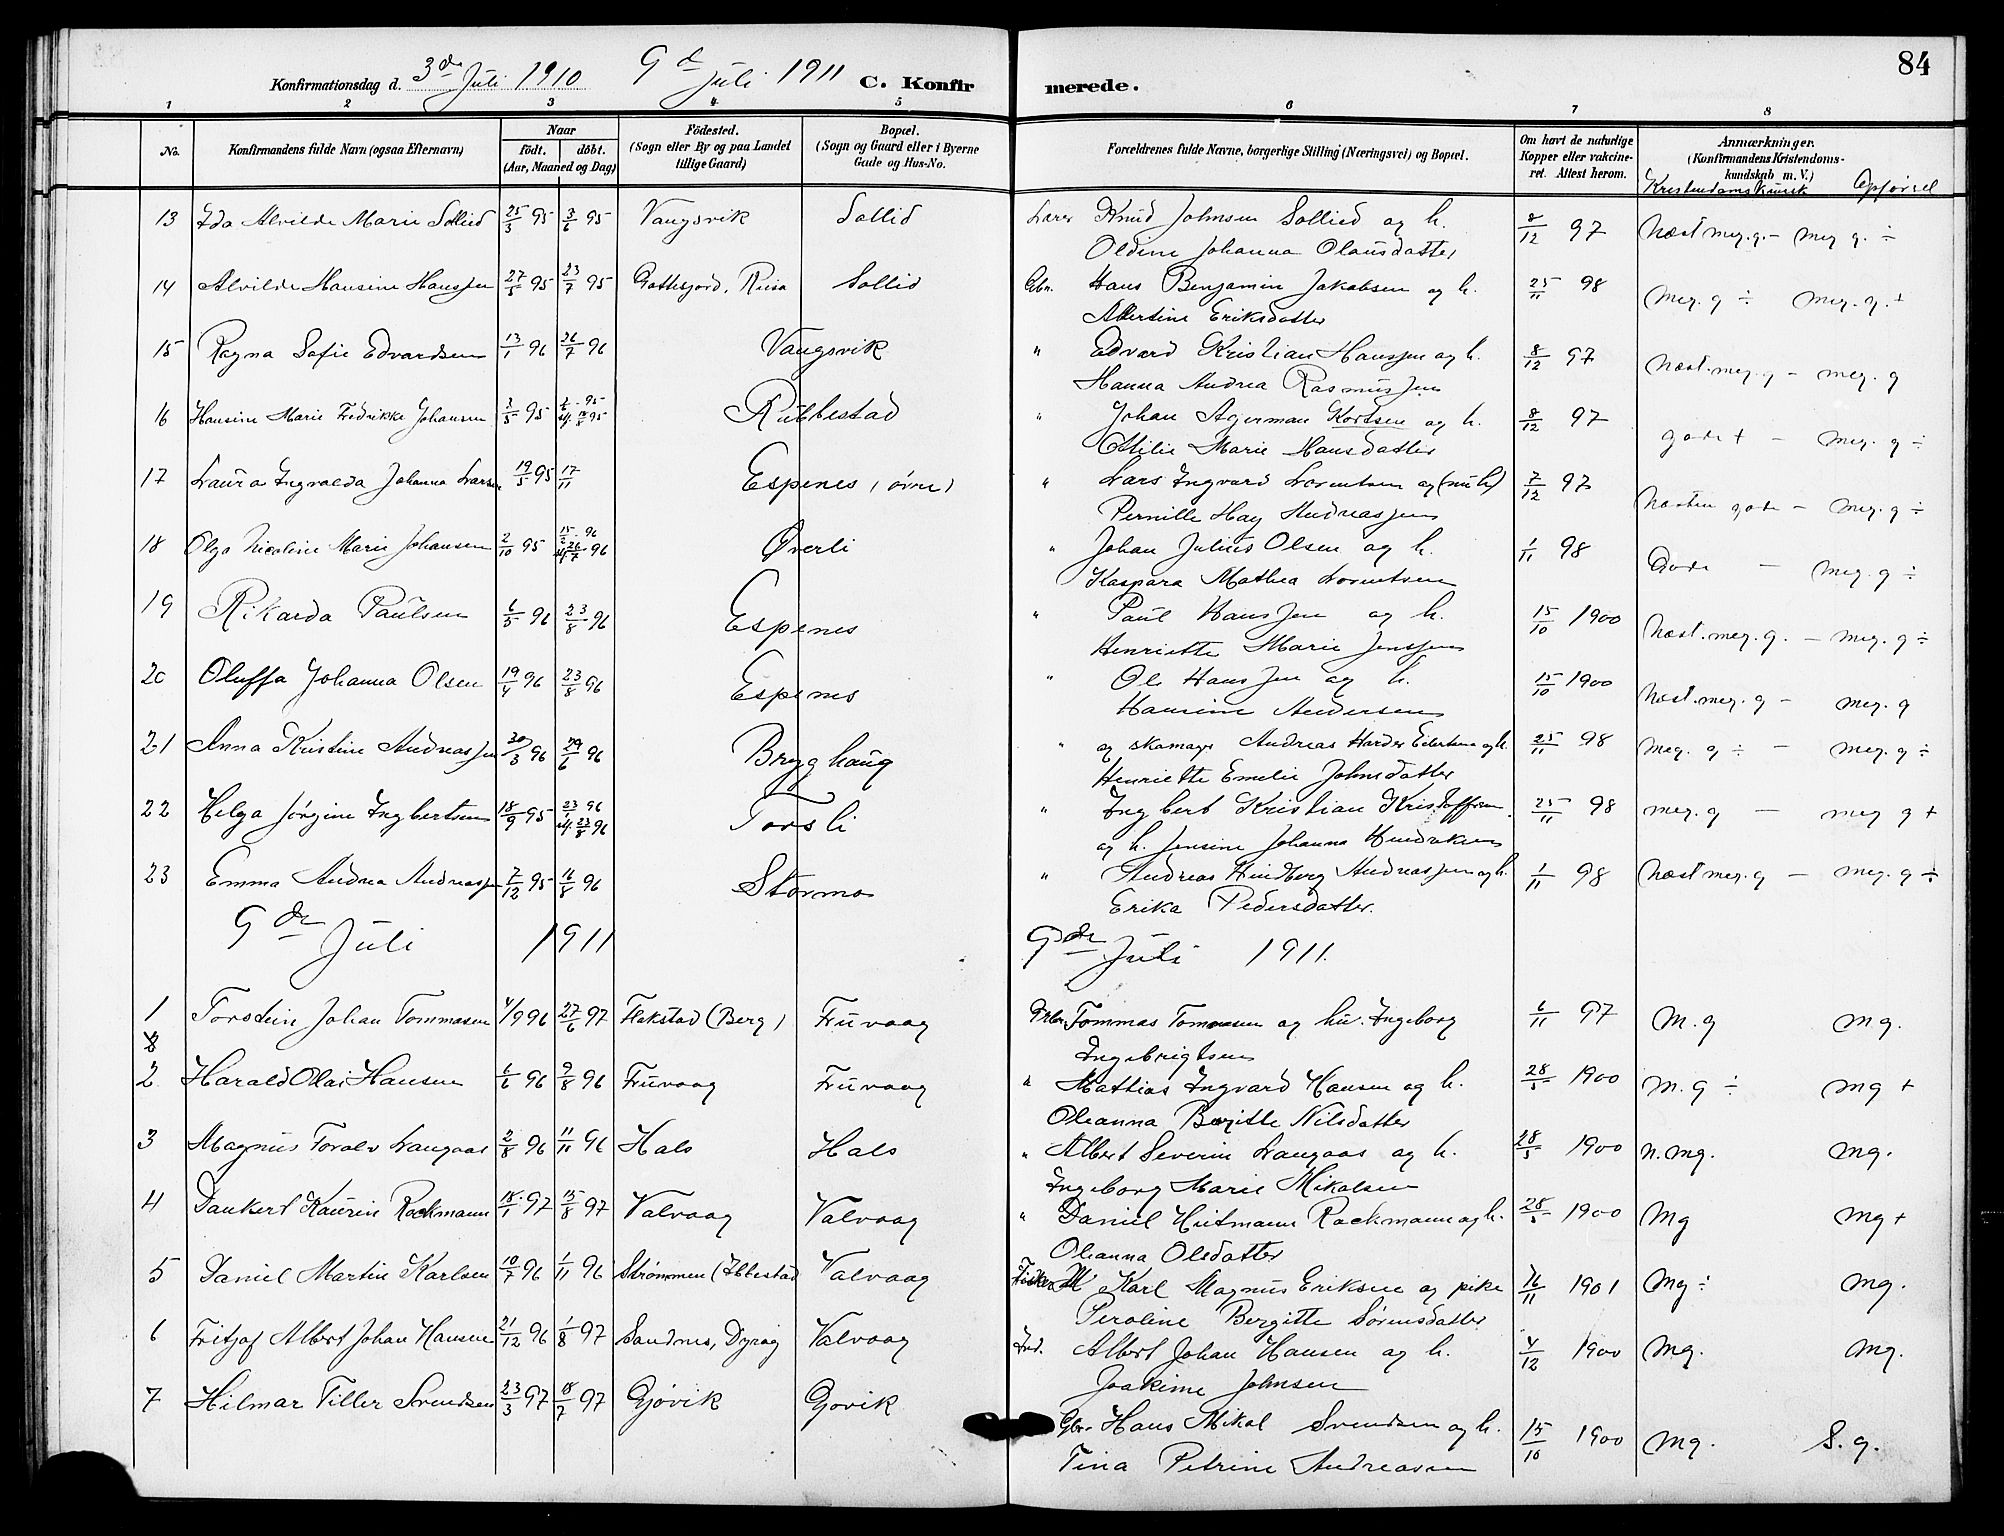 84
Konfirmationsdag d. 3de Juli 1910 9d Juli 1911 C. Konfirmerede.
1 2 3 4 5 6 7 8
No.
Konfirmandens fulde Navn (ogsaa Efternavn)
Naar
født. døbt.
(Aar, Maaned og Dag)
Fødested.
(Sogn eller By og paa Landet
tillige Gaard)
Bopæl.
(Sogn og Gaard eller i Byerne
Gade og Hus-No.
Forældrenes fulde Navne, borgerlige Stilling (Næringsvei) og Bopæl.
Om havt de naturlige
Kopper eller vakcine-
ret. Attest herom.
Anmærkninger.
(Konfirmandens Kristendoms-
kundskab m. V.)
Kristendomskunsk Opførsel
13 Ida Alvilde Marie Sollied 25/3 95 3/6 95 Vangsvik Sollid Lærer Knud Johnsen Sollied og h. 8/12 97 Næst meg. g. - meg g. ÷
Oldine Johanna Olausdatter
14 Alvilde Hansine Hanssen 27/5 95 23/7 95 Rossfjord, Sollid Gbr. Hans Benjamin Jakobsen og h. 25/11 98 Meg. g ÷ meg. g. +
Albertine Eriksdatter
15 Ragna Sofie Edvardsen 13/1 96 26/7 96 Vangsvik " Edvard Kristian Hanssen og h. 8/12 97 Næst. meg. g - meg. g
Hanna Andrea Rasmussen
16 Hansine Marie Fredrikke Johansen 3/5 95 95 stf. 18/8 95 Rubbestad " Johan Agerman Kortsen og h. 8/12 97 godt + - meg. g ÷
Otilie Marie Hansdatter
17 Laura Ingvalda Johanna Larsen 19/5 95 17/11 Espenes (øvre) " Lars Ingvard Lorentsen og (nu h) 7/12 97 Næsten godt - meg. g ÷
Pernille Hay Andreassen
18 Olga Nicoline Marie Johansen 2/10 95 15/2 96 stf. 26/7 96 Øverli " Johan Julius Olsen og h. 1/11 98 Godt - meg. g ÷
Kaspara Mathea Lorentsen
19 Rikarda Paulsen 6/5 96 23/8 96 Espenes " Paul Hanssen og h. 15/10 1900 Næst. meg. g. - meg. g ÷
Henriette Marie Jenssen
20 Oluffa Johanna Olsen 19/4 96 23/8 96 Espenes " Ole Hanssen og h. 15/10 1900 Næst. meg. g - meg. g
Hansine Andersen
21 Anna Kristine Andreassen 30/3 96 29/6 96 Bryghaug " og skomager Andreas Harder Eilertsen og h. 25/11 98 Meg. g ÷ - meg. g ÷
Henriette Emelie Johnsdatter
22 Helga Jørgine Ingbertsen 18/9 95 23/1 96 stf. 23/8 96 Torsli " Ingbert Kristian Kristoffersen 25/11 98 meg. g - meg g +
og h. Jensine Johanna Hendriksen
23 Emma Andrea Andreassen 7/12 95 16/8 96 Stormo " Andreas Hindberg Andreassen og h. 1/11 98 Næst meg. g - meg. g ÷
Erika Pedersdatter.
9de Juli 1911 9de Juli 1911.
1 Torstein Johan Tommasen 4/9 96 27/6 97 Flakstad (Berg) Fruvaag Gbr. Tommas Tomassen og hu. Ingeborg 6/11 97 M. g mg.
Ingebrigtsen
2 Harald Olai Hansen 6/6 96 9/8 96 Fruvaag Fruvaag " Mathias Ingvard Hansen og h. 28/5 1900 M. g ÷ mg +
Oleanna Bergitte Nilsdatter
3 Magnus Toralv Langaas 2/8 96 11/11 96 Hals Hals " Albert Severin Langaas og h. 28/5 1900 n. mg. mg.
Ingeborg Marie Mikalsen
4 Dankert Kaurin Rackmann 18/1 97 15/8 97 Valvaag Valvaag " Daniel Hutmann Rackmann og h. 28/5 1900 Mg mg +
Oleanna Olsdatter
5 Daniel Martin Karlsen 10/7 96 1/11 96 Strømmen (Ibbestad Valvaag Fisker Karl Magnus Eriksen og pike 16/11 1901 Mg ÷ mg.
Peroline Bergitte Sørensdatter
6 Fritjof Albert Johan Hansen 21/12 96 1/8 97 Sandnes, Dyrøy Valvaag Ind. Albert Johan Hansen og h. 4/12 1900 Mg. mg.
Joakime Johnsen
7 Hilmar Tiller Svendsen 23/3 97 18/7 97 Gjøvik Gjøvik Gbr. Hans Mikal Svendsen og h. 15/10 1900 Mg. S. g.
Tina Petrine Andreasen